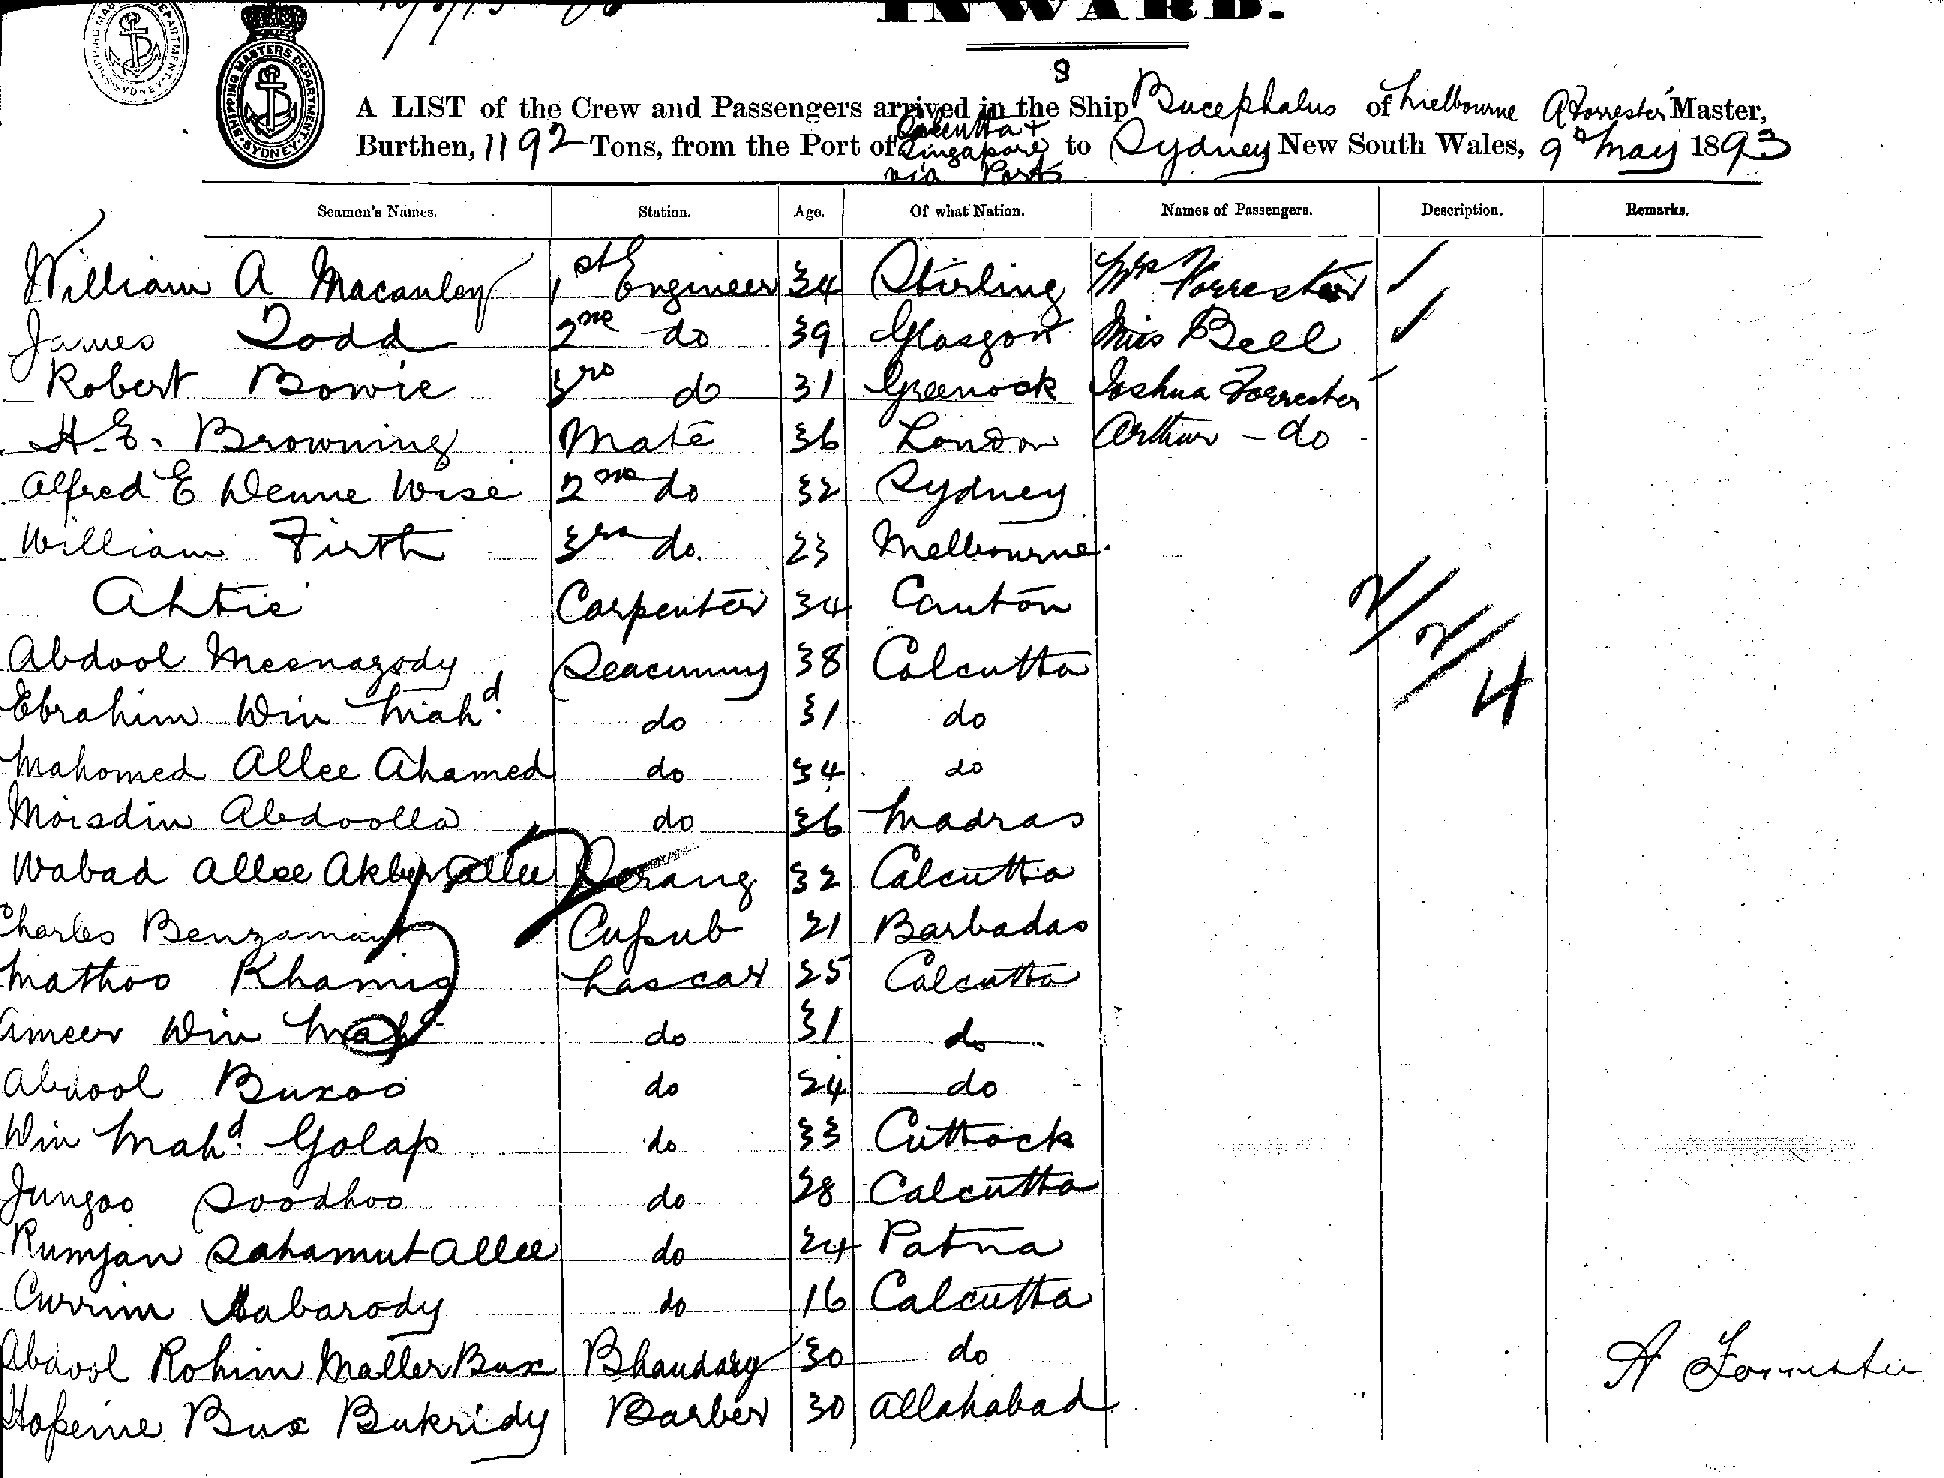 INWARD.
SHIPPING MASTERS DEPARTMENT SYDNEY
8
A LIST of the Crew and Passengers arrived in the Ship Bucephalus of Melbourne A Forrester Master,
Burthen, 1192 Tons, from the Port of Calcutta & Singapore via Ports to Sydney New South Wales, 9th May 1893
Seamen's Names. Station. Age. Of what Nation. Names of Passengers. Description. Remarks.
William A Macauley 1st Engineer 34 Stirling Mrs Forrester
James Todd 2nd do 39 Glasgow Miss Bell
Robert Bowie 3rd do 31 Greenock Joshua Forrester
H. E. Browning Mate 36 London Arthur - do
Alfred E Denne Wise 2nd do 32 Sydney
William Firth 3rd do. 23 Melbourne.
Ahtie Carpenter 34 Canton
Abdool Mesnagody Seacunny 38 Calcutta
Ebrahim Win Mahd. do 31 do
Mahomed Allee Ahamed do 34 do
Moisdin Abdoolla do 36 Madras
Wabad Allee Akber Allee Serang 32 Calcutta
Charles Benzamin 21 Barbadas
Mathoo Khamis Lascar 25 Calcutta
Ameer Win Mahd do 31 do
Abdool Buxoo do 24 do
Win Mahd. Golap do 33 Cuttack
Jungoo Soodhoo do 28 Calcutta
Rumjan Sahamut Allee do 24 Patna
Currim Habarody do 16 Calcutta
Abdool Rohim Maller Bux Bhandary 30 do
Hosseine Bux Bukridy Barber 30 Allahabad
2/2/4
A Forrester